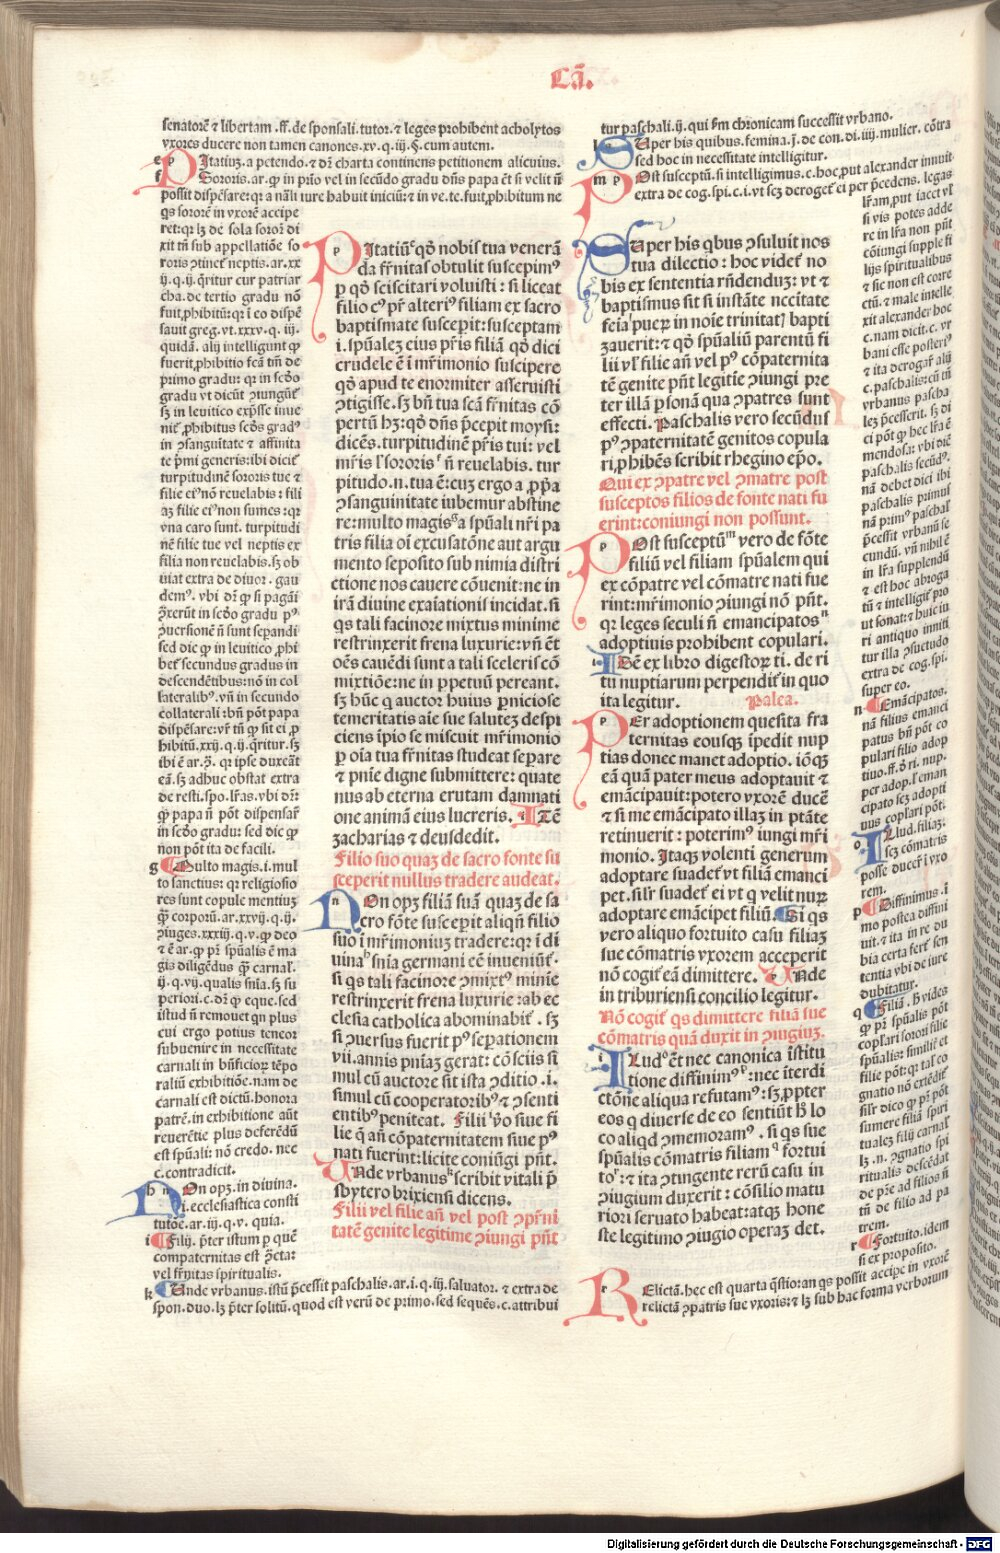 Cã.
senatorē ⁊ libertam .ff. de sponsali. tutor. ⁊ leges prohibent acholytos
vxores ducere non tamen canones. xv. q. iij. §. cum autem.
Itatiuȝ. a petendo. ⁊ dr̄ charta continens petitionem alicuius.
possit dispēsare: qꝛ a nāli iure habuit iniciū: ⁊ in ve. te. fuit ꝓhibitum ne
qs sororē in vxorē accipe
ret: qꝛ lȝ de sola sorori di
xit tn̄ sub appellatiōe so
roris ↄtinet̄ neptis. ar. xx
ij. q. ij. q̄ritur cur patriar
cha. de tertio gradu nō
fuit ꝓhibitū: qꝛ ī eo dispē
sauit greg. vt. xxxv. q. iij.
quidā. alij intelligunt ꝙ
fuerit ꝓhibitio fcā tm̄ de
primo gradu: qꝛ in scd̄o
gradu vt dicūt ↄiungūt̄
sȝ in leuitico exp̄sse inue
nit̄ ꝓhibitus scd̄s grad⁹
in ↄsanguinitate ⁊ affinita
te p̄mi generis: ibi dicit̄
turpitudinē sororis tue ⁊
filie ei⁹ nō reuelabis: fili
aȝ filie ei⁹ non sumes: qꝛ
vna caro sunt. turpitudi
nē filie tue vel neptis ex
filia non reuelabis. sȝ ob
uiat extra de diuor. gau
dem⁹. vbi dr̄ ꝙ si pagāi
ↄ̄xerūt in scd̄o gradu p⁹
ↄuersionē n̄ sunt sepandi
sed dic ꝙ in leuitico ꝓhi
bet̄ secundus gradus in
descendētibus: nō in col
lateralib⁹. vn̄ in secundo
collaterali: bn̄ pōt papa
dispēsare: vr̄ tn̄ ꝙ sit ei ꝓ
hibitū. xxij. q. ij. q̄ritur. sȝ
eā. sȝ adhuc obstat extra
de resti. spo. lr̄as. vbi dr̄:
ꝙ papa n̄ pōt dispensar̄
in scd̄o gradu: sed dic ꝙ
non pōt ita de facili.
g Multo magis. i. mul
to sanctius: qꝛ religiosio
res sunt copule mentiuȝ
ꝙ̄ corporū. ar. xxvij. q. ij.
ↄiuges. xxxij. q. v. ꝙ deo
⁊ ē ar. ꝙ pr̄ spūalis ē ma
gis diligēdus ꝙ̄ carnal̄.
ij. q. vij. qualis sn̄ia. sȝ su
periori. c. dr̄ ꝙ eque. sed
istud n̄ remouet qn plus
cui ergo potius teneor
subuenire in necessitate
carnali in bn̄ficior̄ tēpo
raliū exhibitiōe. nam de
carnali est dictū. honora
patrē. in exhibitione aūt
reuerētie plus deferēdū
est spūali: nō credo. nec
c. contradicit.
h n On opȝ. in diuina.
i. ecclesiastica consti
tutōe. ar. iij. q. v. quia.
i Filij. p̄ter istum p quē
compaternitas est ↄ̄ctar̄
vel fr̄nitas spiritualis.
k Unde vrbanus. istū p̄cessit paschalis. ar. i. q. iij. saluator. ⁊ extra de
spon. duo. lȝ p̄ter solitū. quod est verū de primo. sed sequēs. c. attribui
p Itatiuꝫ qō nobis tua venerā
da fr̄nitas obtulit suscepim⁹
p qō sciscitari voluisti: si liceat
filio c⁹ pr̄ alteri⁹ filiam ex sacro
baptismate susceptam: susceptam
i. spūaleȝ eius pr̄is filiā qō dici
crudele ē ī mr̄imonio suscipere
qō apud te enormiter asseruisti
ↄtigisse. sȝ bn̄ tua scā fr̄nitas cō
pertū hȝ: qō dn̄s p̄cepit moysi:
dicēs. turpitudinē pr̄is tui: vel
mr̄is l' sororis n̄ reuelabis. tur
pitudo. n. tua ē: cuȝ ergo a ꝓpa
ↄsanguinitate iubemur abstine
re: multo magis a spūali nr̄i pa
tris filia oī excusatōne aut argu
mento seposito sub nimia distri
ctione nos cauere cōuenit: ne in
irā diuine exaīationis incidat. si
qs tali facinore mixtus minime
restrinxerit frena luxurie: vn̄ ēt
oēs cauēdi sunt a tali sceleris cō
mixtiōe: ne in ꝑpetuū pereant.
sȝ hūc q auctor huius ꝑniciose
temeritatis aīe sue saluteȝ despi
ciens ipīo se miscuit mr̄imonio
ꝑ oīa tua fr̄nitas studeat separe
⁊ pnīe digne submittere: quate
nus ab eterna erutam damnati
one animā eius lucreris. ITē
zacharias ⁊ deusdedit.
Filio suo quaȝ de sacro fonte su
sceperit nullus tradere audeat.
n On opȝ filiā suā quaȝ de sa
cro fōte suscepit aliqn̄ filio
suo ī mr̄imoniuȝ tradere: qꝛ ī di
uina snīa germani eē inueniūt̄.
si qs tali facinore ↄmixt⁹ minie
restrinxerit frena luxurie: ab ec
clesia catholica abominabit̄. sȝ
si ↄuersus fuerit p⁹ sepationem
vii. annis pniaȝ gerat: cōsciis si
mul cū auctore sit ista ↄditio. i.
simul cū cooperatorib⁹ ⁊ ↄsenti
entib⁹ peniteat. Filii v̓o siue fi
lie q̄ an̄ cōpaternitatem siue p⁹
nati fuerint: licite coniūgi pn̄t.
UNde vrbanus scribit vitali p̄
sbytero brixiensi dicens.
Filii vel filie an̄ vel post ↄpr̄ni
tatē genite legitime ↄiungi pn̄t
tur paschali. ij. qui s̄m chronicam successit vrbano.
Uper his quibus. femina. j. de con. di. iiij. mulier. cōtra
sed hoc in necessitate intelligitur.
m p Ost susceptū. si intelligimus. c. hoc, put alexander innuit
extra de cog. spi. c. i. vt scȝ deroget̄ ei per p̄cedens. legas
Uper his qbus ↄsuluit nos
tua dilectio: hoc videt̄ no
bis ex sententia rn̄denduȝ: vt ⁊
baptismus sit si instāte nccitate
feīa pueꝝ in noīe trinitatꝭ bapti
ȝauerit: ⁊ qō spūaliū parentū fi
lii vl' filie an̄ vel p⁹ cōpaternita
tē genite pn̄t legitīe ↄiungi pre
ter illā psonā qua ↄpatres sunt
effecti. Paschalis vero secūdus
p⁹ ↄpaternitatē genitos copula
ri ꝓhibēs scribit rhegino epō.
Qui ex ↄpatre vel ↄmatre post
susceptos filios de fonte nati fu
erint: coniungi non possunt.
p Ost susceptū vero de fōte
filiū vel filiam spūalem qui
ex cōpatre vel cōmatre nati fue
rint: mr̄imonio ↄiungi nō pn̄t.
qꝛ leges seculi n̄ emancipatos
adoptiuis prohibent copulari.
IDē ex libro digestoꝝ ti. de ri
tu nuptiarum perpendit̄ in quo
ita legitur. Palea.
p Er adoptionem quesita fra
ternitas eousqȝ īpedit nup
tias donec manet adoptio. iōqȝ
eā quā pater meus adoptauit ⁊
emācipauit: potero vxorē ducē
⁊ si me emācipato illaȝ in ptāte
retinuerit: poterim⁹ iungi mr̄i
monio. Itaqȝ volenti generum
adoptare suadet̄ vt filiā emanci
pet. sil'r suadet̄ ei vt q velit nuꝝ
adoptare emācipet filiū. Si qs
vero aliquo fortuito casu filiaȝ
sue cōmatris vxorem acceperit
nō cogit̄ eā dimittere. Unde
in triburiensi concilio legitur.
Nō cogit̄ qs dimittere filiā sue
cōmatris quā duxit in ↄiugiuȝ.
i Lud ēt nec canonica īstitu
tione diffinim⁹: nec īterdi
ctōne aliqua refutam⁹: sȝ ꝓpter
eos q diuerse de eo sentiūt h̄ lo
co aliqd ↄmemoram⁹. si qs sue
spūalis cōmatris filiam fortui
to: ⁊ ita ↄtingente rerū casu in
ↄiugium duxerit: cōsilio matu
riori seruato habeat: atqȝ hone
ste legitimo ↄiugio operaȝ det.
lr̄am, put iacet vt
si vis potes adde
re in lr̄a non pn̄t
cōiungi supple fi
lijs spiritualibus
⁊ sic non est corre
ctū. ⁊ male intelle
xit alexander hoc
c. nam dicit. c. vr
bani esse posteri⁹
⁊ ita derogar̄ alij
c. paschalis: cū tn̄
vrbanus pascha
leȝ p̄cesserit. sȝ di
ci pōt ꝙ hec lr̄a ē
mendosa: vbi dic̄
paschalis secūd⁹.
nā debet dici ibi
paschalis primus
nā prim⁹ paschal'
p̄cessit vrbanū se
cundū. vn̄ nihil ē
in lr̄a supplendū
⁊ est hoc abroga
tū ⁊ intelligit̄ pro
ut sonat: ⁊ huic iu
ri antiquo inniti
tur illa ↄsuetudo
extra de cog. spi.
super eo.
n Emācipatos.
nā filius emanci
patus bn̄ pōt co
pulari filio adop
tiuo. ff. d̄ ri. nup.
per adop. l' eman
cipato scȝ adopti
uus coplari pōt.
o Llud. filiaȝ.
scȝ cōmatris
posse ducer̄ ī vxo
rem.
p Diffinimus. i
mo postea diffini
uit. ⁊ ita in re du
bia certa fert̄ sen
tentia vbi de iure
dubitatur.
q Filiā. h̄ vides
ꝙ pr̄ spūalis pōt
coplari sorori filie
spūalis: similit̄ et
filie pōt: qꝛ tal' co
gnatio nō extēdit̄
sil'r dico ꝙ pr̄ pōt
sumere filiā spiri
tualeȝ filij carnal'
lȝ. n. ↄgnatio spi
ritualis descēdat
de pr̄e ad filios n̄
tn̄ de filio ad pa
trem.
r Fortuito. idem
si ex proposito.
r Elictā. hec est quarta q̄stio: an qs possit accipe in vxorē
relictā ↄpatris sue vxoris: ⁊ lȝ sub hac forma verborum
Digitalisierung gefördert durch die Deutsche Forschungsgemeinschaft - DFG